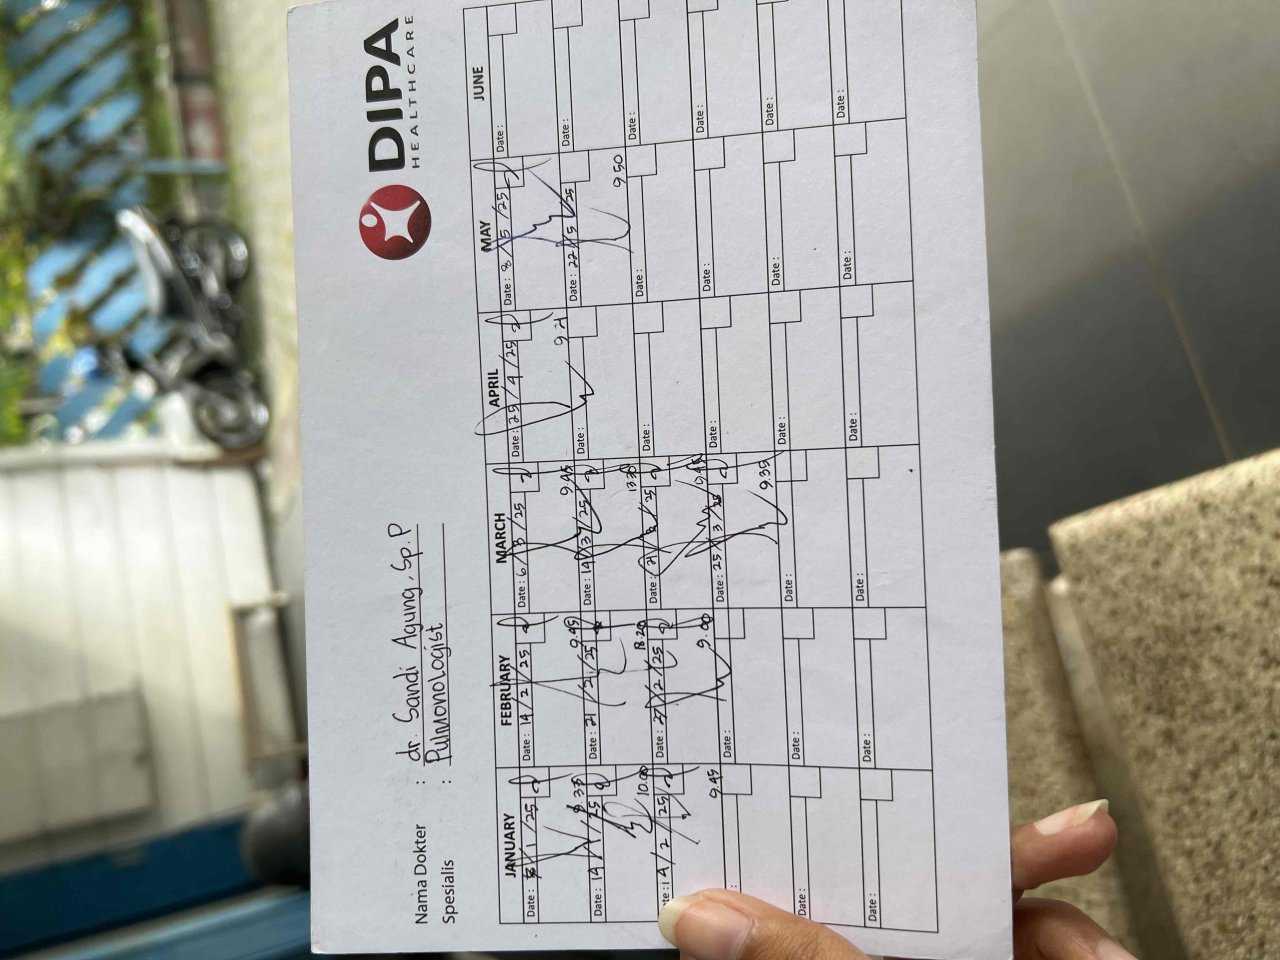 DIPA
HEALTHCARE
Nama Dokter : dr. Sandi Agung, Sp.P
Spesialis : Pulmonologist
JANUARY FEBRUARY MARCH APRIL MAY JUNE
Date: /1/25 Date: 14/2/25 Date: 6/3/25 Date: 25/4/25 Date: 8/5/25 Date:
9.45 9.21
Date: 14/1/25 Date: 21/2/25 Date: 14/3/25 Date: Date: 22/5/25 Date:
10.00 13.30 9.50
Date: 14/2/25 Date: 27/2/25 Date: 21/3/25 Date: Date: Date:
9.45 9.00 9.45
Date: Date: 25/3/25 Date: Date: Date:
9.35
Date: Date: Date: Date: Date: Date:
Date: Date: Date: Date: Date: Date: